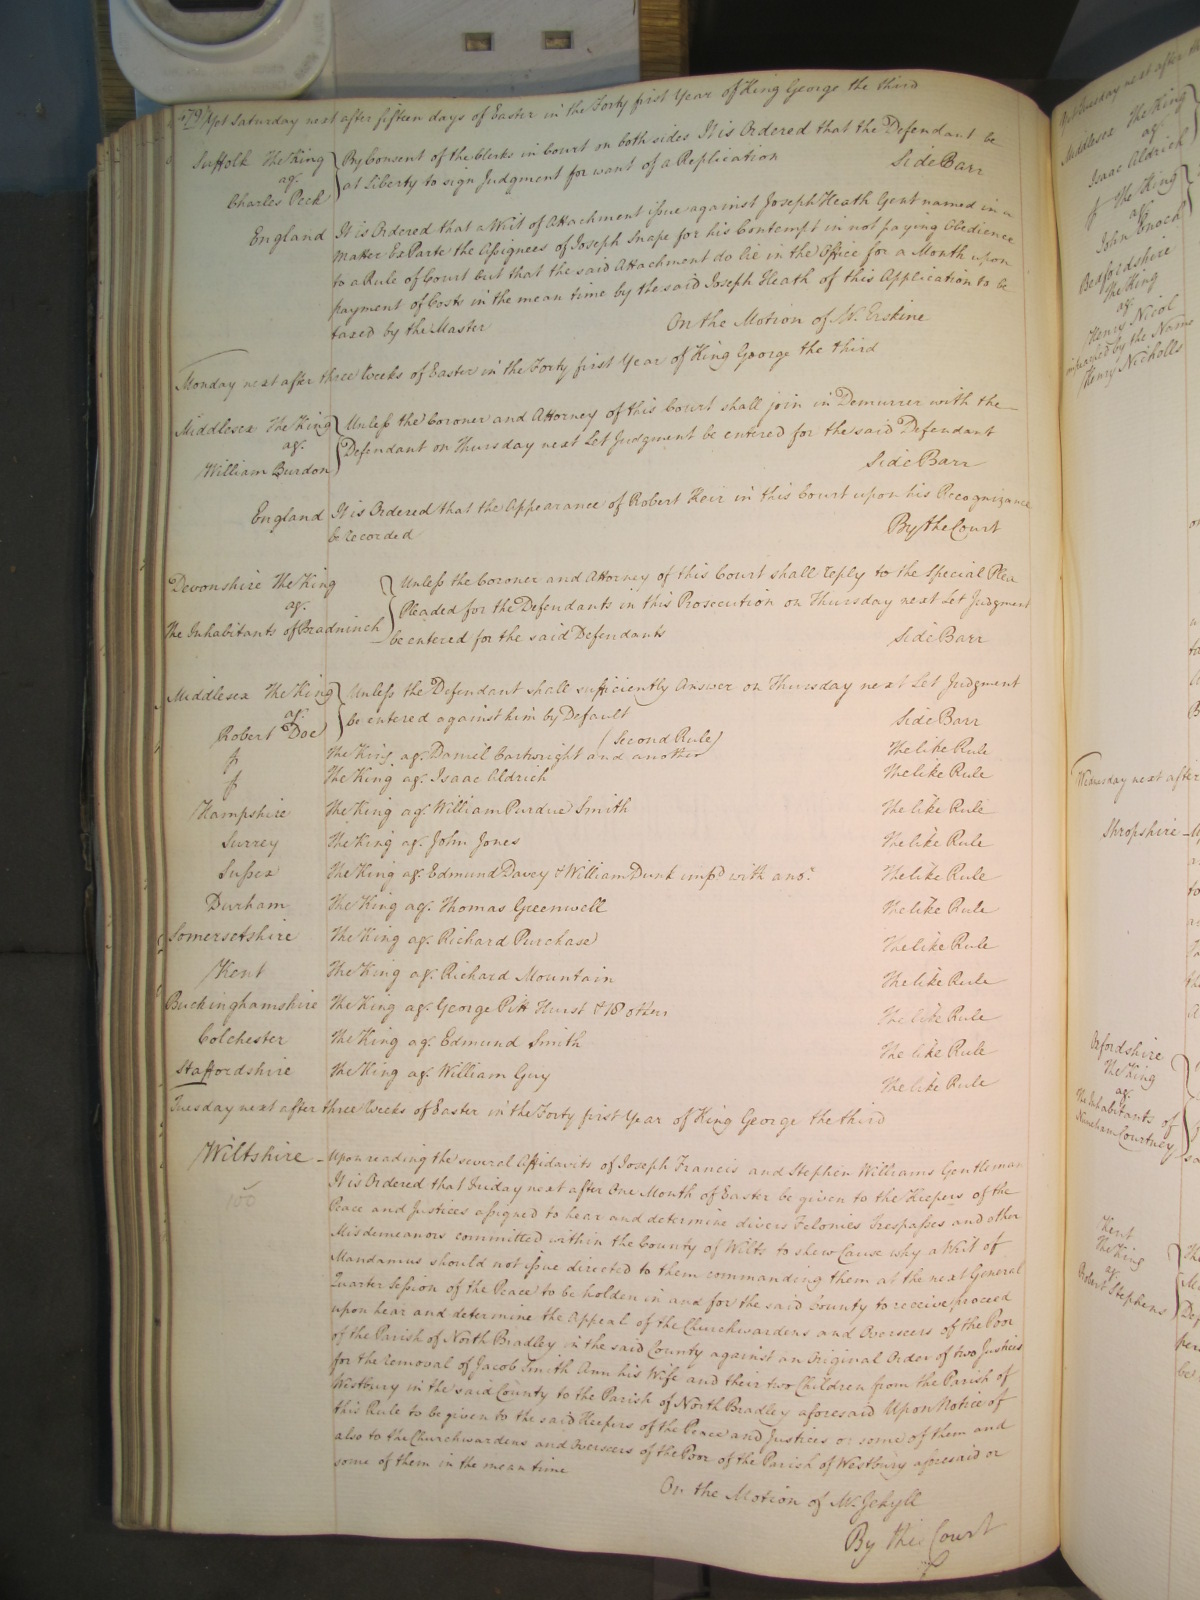 Yet Saturday next after fifteen days of Easter in the Forty first Year of King George the third
Suffolk The King
agt.
Charles Peck
By Consent of the Clerks in Court on both sides It is Ordered that the Defendant be
at Liberty to sign Judgment for want of a Replication
Side Barr
England
It is Ordered that a Writ of Attachment issue against Joseph Heath Gent named in a
matter Ex Parte the Assignees of Joseph Snape for his Contempt in not paying Obedience
to a Rule of Court but that the said Attachment do lie in the Office for a Month upon
payment of Costs in the mean time by the said Joseph Heath of this Application to be
taxed by the Master
On the Motion of Mr. Erskine
Monday next after three Weeks of Easter in the Forty first Year of King George the third
Middlesex The King
agt.
William Burdon
Unless the Coroner and Attorney of this Court shall join in Demurrer with the
Defendant on Thursday next Let Judgment be entered for the said Defendant
Side Barr
England
It is Ordered that the Appearance of Robert Keir in this Court upon his Recognizance
be recorded
By the Court
Devonshire The King
agt.
The Inhabitants of Bradninch
Unless the Coroner and Attorney of this Court shall reply to the Special Plea
Pleaded for the Defendants in this Prosecution on Thursday next Let Judgment
be entered for the said Defendants
Side Barr
Middlesex The King
agt.
Robert Doe
Unless the Defendant shall sufficiently Answer on Thursday next Let Judgment
be entered against him by Default
Side Barr
(Second Rule)
The King agt. Daniel Cartwright and another The like Rule
The King agt. Isaac Aldrich The like Rule
Hampshire The King agt. William Purdue Smith The like Rule
Surrey The King agt. John Jones The like Rule
Sussex The King agt. Edmund Davey & William Dunk impd. with anor. The like Rule
Durham The King agt. Thomas Greenwell The like Rule
Somersetshire The King agt. Richard Purchase The like Rule
Kent The King agt. Richard Mountain The like Rule
Buckinghamshire The King agt. George Pitt Hurst & 18 others The like Rule
Colchester The King agt. Edmund Smith The like Rule
Staffordshire The King agt. William Guy The like Rule
Tuesday next after three Weeks of Easter in the Forty first Year of King George the third
Wiltshire
100
Upon reading the several Affidavits of Joseph Francis and Stephen Williams Gentleman
It is Ordered that Friday next after One Month of Easter be given to the Keepers of the
Peace and Justices assigned to hear and determine divers Felonies Trespasses and other
Misdemeanors committed within the County of Wilts to shew Cause why a Writ of
Mandamus should not issue directed to them commanding them at the next General
Quarter Session of the Peace to be holden in and for the said County to receive proceed
upon hear and determine the Appeal of the Churchwardens and Overseers of the Poor
of the Parish of North Bradley in the said County against an Original Order of two Justices
for the removal of Jacob Smith Ann his Wife and their two Children from the Parish of
Westbury in the said County to the Parish of North Bradley aforesaid Upon Notice of
this Rule to be given to the said Keepers of the Peace and Justices or some of them and
also to the Churchwardens and Overseers of the Poor of the Parish of Westbury aforesaid or
some of them in the mean time
On the Motion of Mr. Jekyll
By the Court
Yet Tuesday next after
Middlesex The King
agt.
Isaac Aldrich
The King
agt.
John Enoch
Bedfordshire
The King
agt.
Henry Nicol
impleaded by the Name
Henry Nicholls
Wednesday next after
Shropshire
Oxfordshire
The King
agt.
The Inhabitants of
Nuneham Courtney
Kent
The King
agt.
Robert Stephens